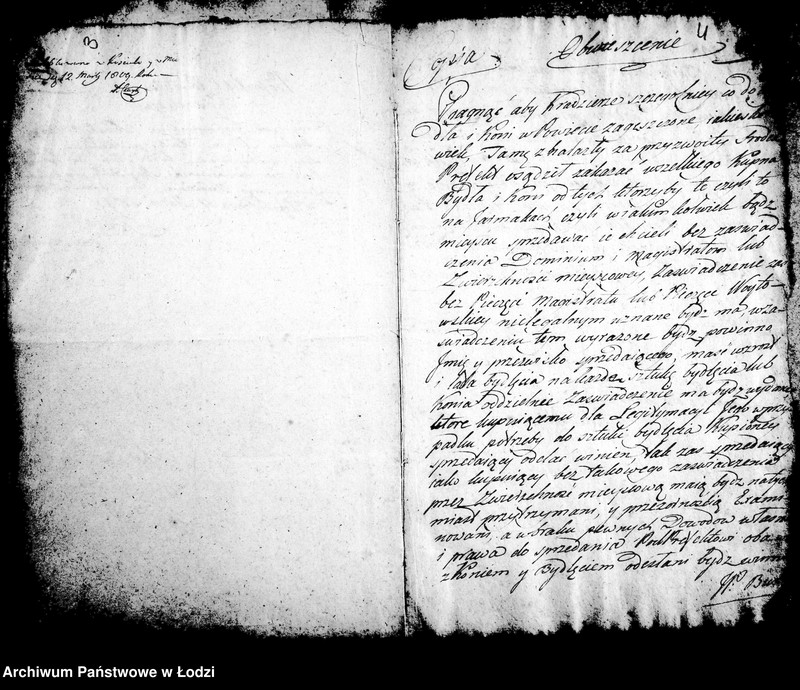 3
w Kościele y w Mie
12. Marty 1809 Roku
4
Copia Obwieszczenie
Pragnąć aby kradzieże szczególniey co do By
dła i Koni w Powiecie zagęszczone iakieykol
wiek Tamę znalazły za przyzwoity Srodek
Prefekt osądził zakazać wszelkiego Kupna
Bydła i Koni od tych którzyby te czyli to
na Jarmakach czyli w iakim kolwiek bądz
mieyscu sprzedawać ie chcieli bez zaswiad
czenia Dominium i Magistratom lub
Zwierzchności mieyscowey, Zaswiadczenie zas
bez Pieczęci Magistratu lub Pieczęci Woyto
wskiey nielegalnym uznane bydz ma, w za
swiadczeniu tem wyrażone bydz powinno
Jmię y przezwisko sprzedaiącego, maść wzrost
i lata bydlęcia na każdę sztukę bydlęcia lub
Konia oddzielnie Zaswiadczenie ma bydz wydane
które kupuiącemu dla Legitymacyi Jego w przy
padku potrzeby do sztuki bydlęcia Kupioney
sprzedaiący oddać winien, tak zas sprzedaiący
iako kupuiący bez takowego zaswiadczenia
przez Zwierzchność mieyscową maią bydz natych
miast przytrzymani, y przezornością Exami
nowani, a w braku pewnych Dowodow własno
i prawa do sprzedania PodPrefektowi oba
z Koniem y Bydlęciem odesłani bydz winni
Archiwum Państwowe w Łodzi